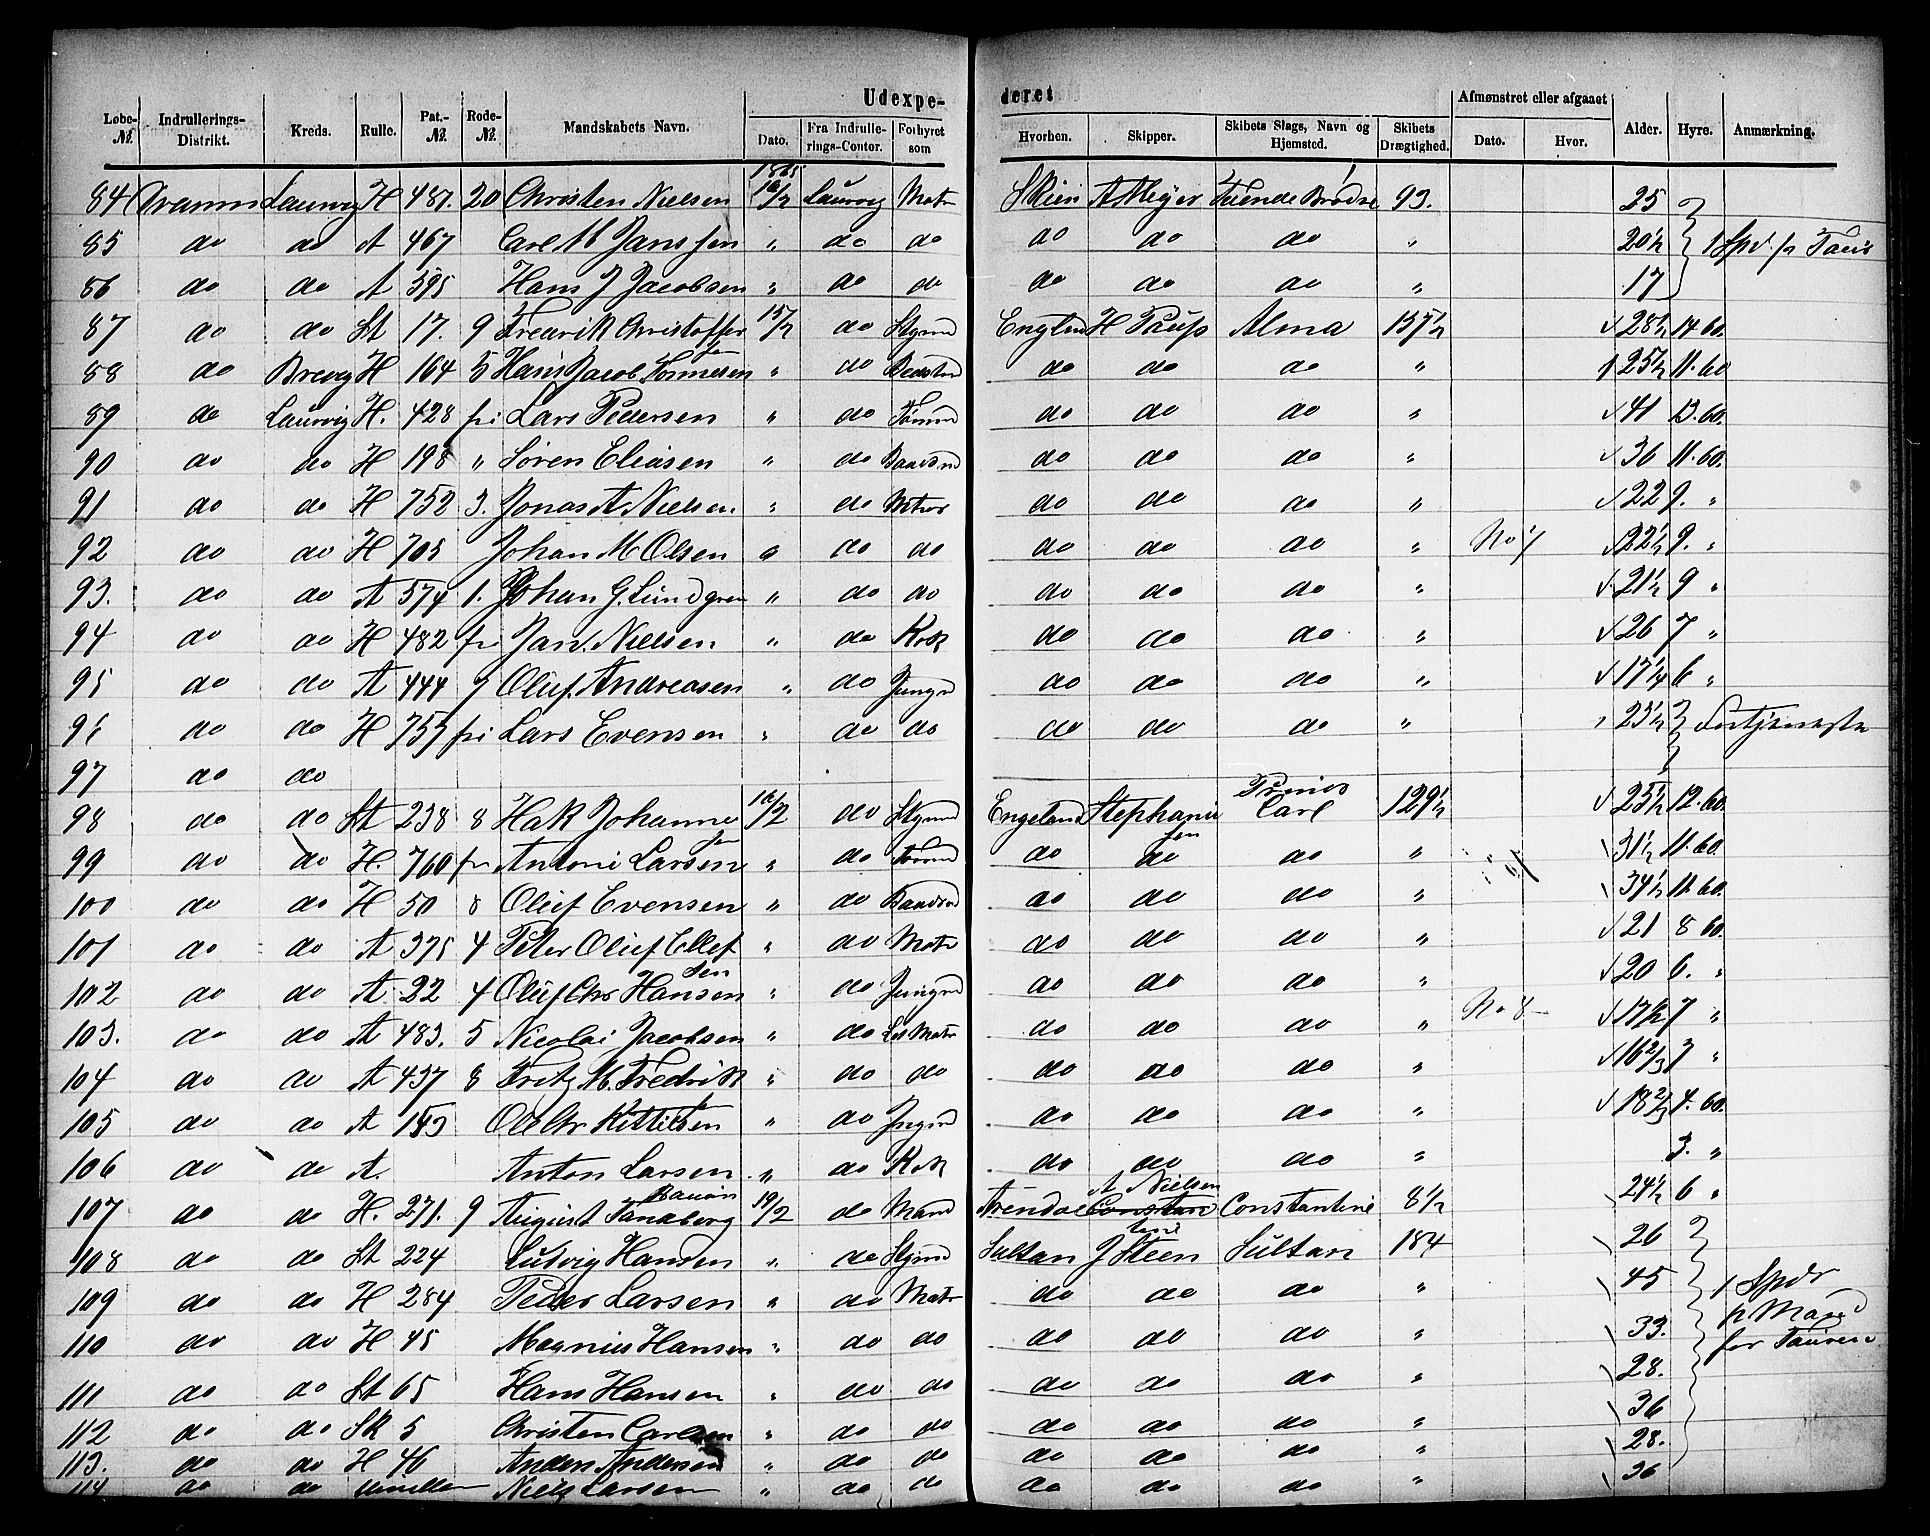 Udexpe- deret
Løbe-№. Indrullerings-Distrikt. Kreds. Rulle. Pat.-№. Rode-№. Mandskabets Navn. Dato. Fra Indrulle-rings-Contor. Forhyret som Hvorhen. Skipper. Skibets Slags, Navn og Hjemsted. Skibets Drægtighed. Afmønstret eller afgaaet Dato. Hvor. Alder. Hyre. Anmærkning.
1865
84 Laurvig H 487. 20 Christen Nielsen 16/2 Laurvig Matr Skien A Meyer Brødre 93. 25
85 do do A 467 Carl M Janssen " do do do do do " 20½ 1 Spd. pr
86 do do A 395 Hans J Jacobsen " do do do do do " 17
87 do do St 17. 9 Fredrik Christoffersen 15/2 do Stymd England H Alma 157½ 28½ 14 60.
88 do Brevig H 164 5 Hans Jacob " do do do do " 25½ 11. 60
89 do Laurvig H. 428 fri Lars Pedersen " do Tømmd do do do " 41 13. 60.
90 do do H 198 " Søren Eliasen " do Baadsmd do do do " 36 11. 60.
91 do do H 752 3. Jonas A Nielsen " do Matr do do do " 22 9. "
92 do do H 705 Johan M Olsen " do do do do do " No 7 22½ 9. "
93. do do A 574 1. Johan G. Lundgren " do do do do do " 21½ 9 "
94 do do H 482 fri Jan. Nielsen " do Kok do do do " 26 7 "
95 do do A 444 7 Oluf. Andreasen " do Jungmd do do do " 17¼ 6 "
96 do do H 753 fri Lars Evensen " do do do do do " 23½ Fortjeneste
97 do do
98 do do St 238 8 Hak Johannesen 16/2 do Stymd Engeland Stephansen Prinds Carl 129½ 25½ 12. 60.
99 do do H. 760 fri Antoni Larsen " do Tømmd do do do " 31½ 11. 60.
100 do do H 50 8 Oluf Evensen " do Baadsmd do do do " 34½ 11. 60.
101 do do A 375 4 Peter Oluf Ellefsen " do Matr do do do " 21 8 60.
102 do do A 22 4 Oluf Chr Hansen " do Jungmd do do do " 20 6. "
103. do do A 483. 5 Nicolai Jacobsen " do Let Matr do do do " No 8 17½ 7 "
104 do do A 437 8 Fritz M. Fredrik " do do do do do " 16 2/3 7 "
105 do do A 153 Ole Chr Kittilsen " do Jngmd do do do " 18 2/3 4. 60.
106 do do A. Anton Larsen " do Kok do do do " 3. "
107 do do H. 271. 9 August Tandberg 19/2 do Mand Arendal A Nielsen Constantine 8½ 24½ 6 "
108 do do St 224 Ludvig Hansen " do Stymd Sultan J Steen Sultan 184 26
109 do do H 284 Peder Larsen " do Matr do do do " 45 1 Spdr
110 do do H 45 Magnus Hansen " do do do do do " 33. pr Mand for
111 do do St 65 Hans Hansen " do do do do do " 28.
112 do do Sk 5 Christen Carlsen " do do do do do " 36
113. do do H 46 Anders Andersen " do do do do do " 28.
114 do do Niels Larsen " do do do do do " 36